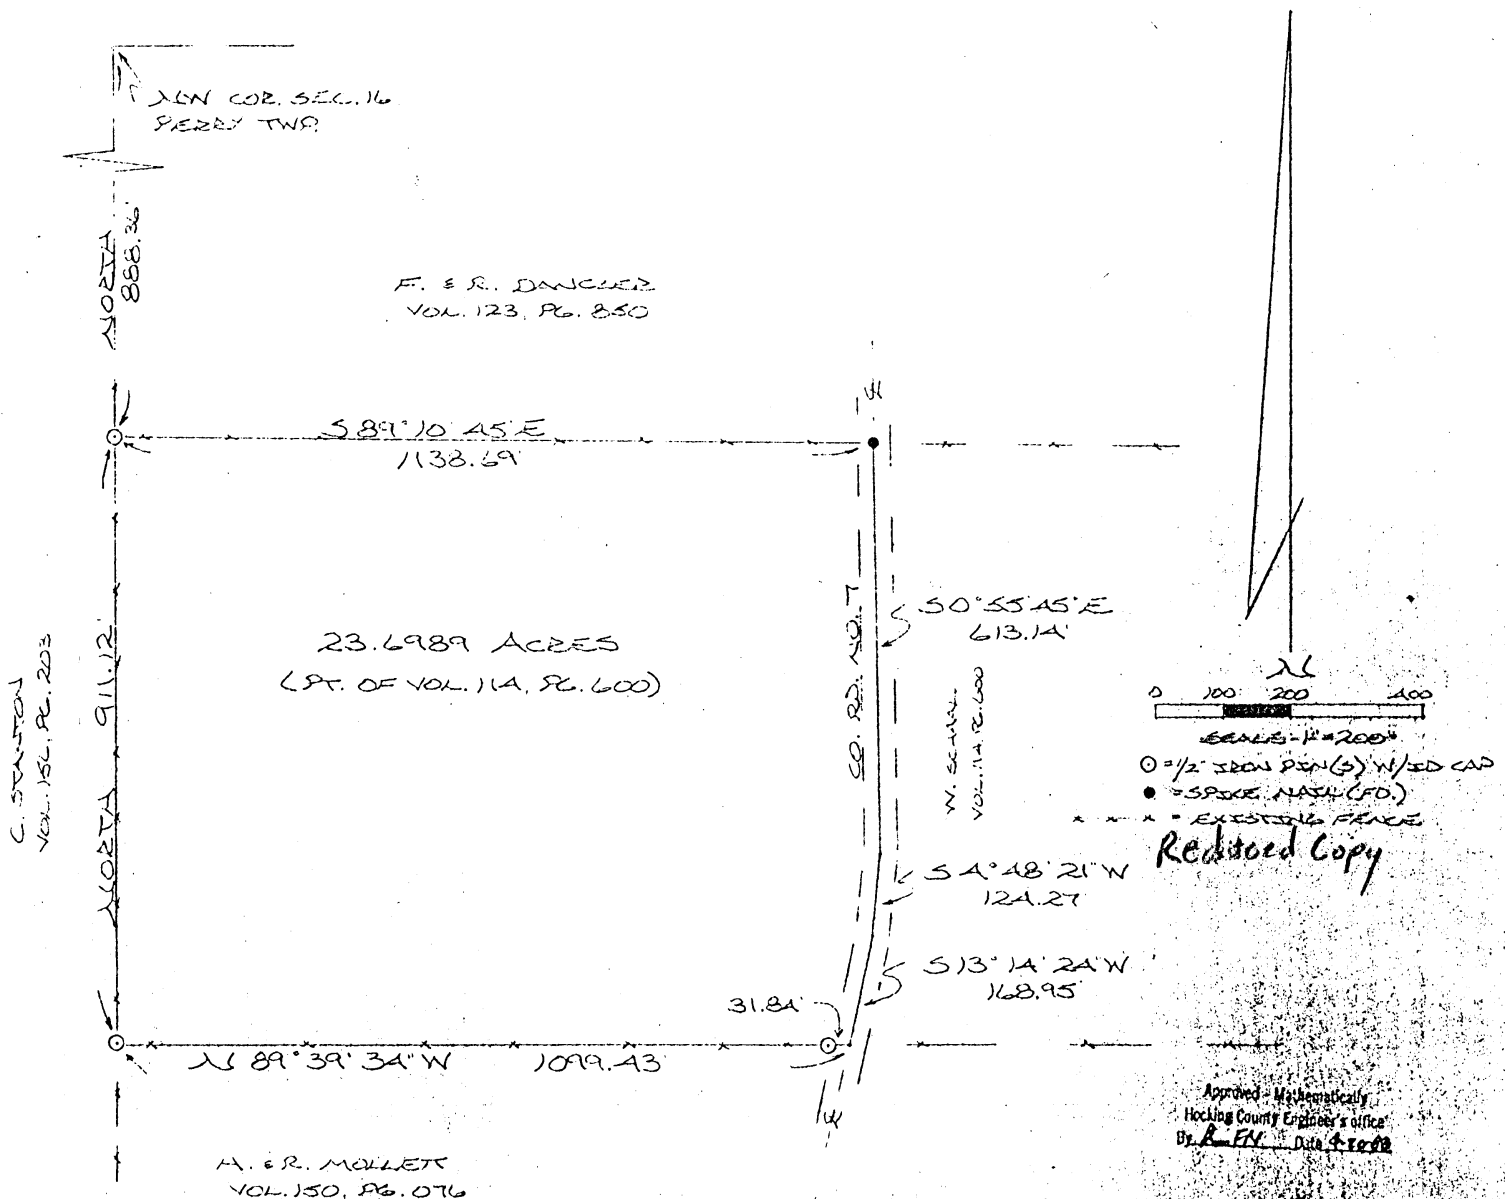 NW COR. SEC. 16
PERRY TWP.
NORTH
888.36'
F. & R. DANGLER
VOL. 123, PG. 850
S 89° 10' 45" E
1138.69'
C. STANTON
VOL. 156, PG. 203
NORTH 911.12'
23.6989 ACRES
(PT. OF VOL. 114, PG. 600)
CO. RD. NO. 7
S 0° 55' 45" E
613.14'
W. 
VOL. 114, PG. 600
S 4° 48' 21" W
124.27
S 13° 14' 24" W
168.95'
31.84'
N 89° 39' 34" W 1099.43'
A. & R. MOLLETT
VOL. 150, PG. 076
N
0 100 200 400
SCALE - 1" = 200'
= 1/2" IRON PIN(S) W/ID CAP
= SPIKE NAIL (FD.)
x x x = EXISTING FENCE
Reduced Copy
Approved - Mathematically
Hocking County Engineer's office
By Date